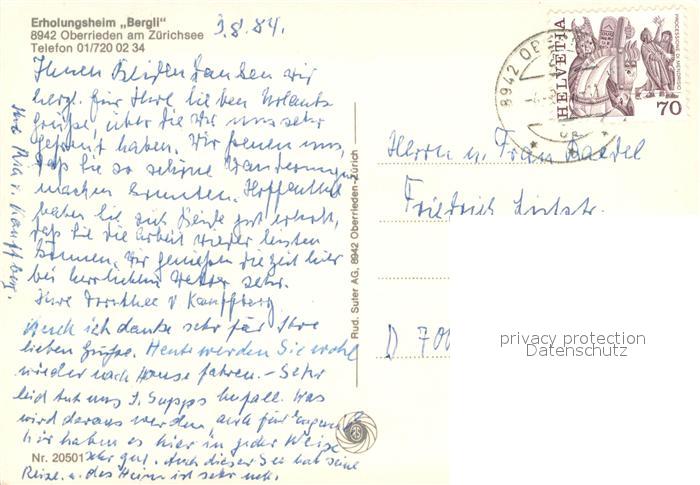 Erholungsheim „Bergli"
8942 Oberrieden am Zürichsee
Telefon 01/720 02 34
3.8.84.
Ihnen Beiden danken wir
herzl. für Ihre lieben Urlaubs
grüße, über die wir uns sehr
gefreut haben. Wir freuen uns,
daß Sie so schöne Wanderungen
machen konnten. Hoffentlich
haben Sie sich Beide gut erholt,
daß Sie die Arbeit wieder leisten
können. Wir genießen die Zeit hier
bei herrlichem Wetter sehr.
Ihre Dorothee v
Auch ich danke sehr für Ihre
lieben Grüße. Heute werden Sie wohl
wieder nach Hause fahren. - Sehr
leid tut uns Befall. Was
wird daraus werden, auch für
Wir haben es hier in jeder Weise
sehr gut. Auch dieser See hat seine
Reize. u. das Heim ist sehr nett.
Ihre v.
Nr. 20501
Rud. Suter AG, 8942 Oberrieden-Zürich
8942 OB
HELVETIA
PROCESSIONE DI MENDRISIO
70
Herrn u. Frau
Friedrich
D 70
privacy protection
Datenschutz